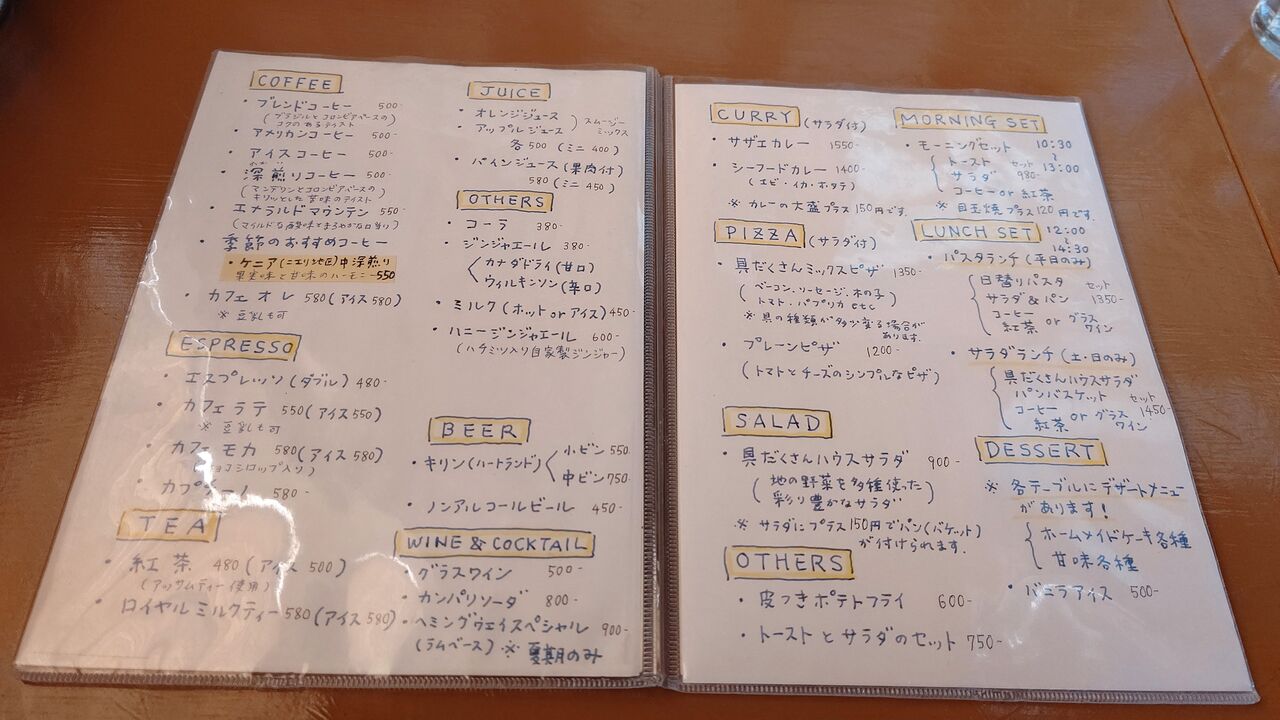 COFFEE
・ブレンドコーヒー 500-
(ブラジルとコロンビアベースの
コクのあるテイスト
・アメリカンコーヒー 500-
・アイスコーヒー 500-
・深煎りコーヒー 500-
(マンデリンとコロンビアベースの)
キリッとした苦味のテイスト
・エメラルドマウンテン 550-
・季節のおすすめコーヒー
・ケニア(ニエリ地区)中深煎り
果実味と甘味のハーモニー 550
・カフェオレ 580(アイス580)
※ 豆乳も可
ESPRESSO
・エスプレッソ(ダブル) 480-
・カフェラテ 550(アイス550)
※ 豆乳も可
・カフェモカ 580(アイス580)
チョコシロップ入り)
580-
TEA
・紅茶 480(アイス500)
(アッサムティー使用)
・ロイヤルミルクティー 580(アイス580)
JUICE
・オレンジジュース
・アップルジュース ) スムージー
ミックス
各500 (ミニ400)
・パインジュース(果肉付)
580(ミニ450)
OTHERS
・コーラ 380-
・ジンジャエール 380-
カナダドライ(甘口)
ウィルキンソン(辛口)
・ミルク(Hot or アイス)450-
・ハニージンジャエール 600-
(ハチミツ入り自家製ジンジャー)
BEER
・キリン(ハートランド) 小ビン550
中ビン750-
・ノンアルコールビール 450-
WINE & COCKTAIL
・グラスワイン 500-
・カンパリソーダ 800-
・ヘミングウェイスペシャル 900-
(ラムベース) ※ 夏期のみ
CURRY (サラダ付)
・サザエカレー 1550-
・シーフードカレー 1400-
(エビ・イカ・ホタテ)
※ カレーの大盛プラス150円です.
PIZZA (サラダ付)
・具だくさんミックスピザ 1350-
(ベーコン、ソーセージ、木の子
トマト、パプリカ etc)
※ 具の種類が多少変る場合が
あります.
・プレーンピザ 1200-
(トマトとチーズのシンプルなピザ)
SALAD
・具だくさんハウスサラダ 900-
(地の野菜を多種使った
彩り豊かなサラダ)
※ サラダにプラス150円でパン(バケット)
が付けられます.
OTHERS
・皮つきポテトフライ 600-
・トーストとサラダのセット 750-
MORNING SET
・モーニングセット 10:30
~
13:00
トースト セット
サラダ 980-
コーヒー or 紅茶
※ 目玉焼プラス120円です.
LUNCH SET 12:00
~
14:30
・パスタランチ(平日のみ)
日替りパスタ セット
サラダ&パン 1350-
コーヒー
紅茶 or グラス
ワイン
・サラダランチ(土・日のみ)
具だくさんハウスサラダ
パンバスケット セット
1450-
コーヒー
紅茶 or グラス
ワイン
DESSERT
※ 各テーブルにデザートメニュー
があります!
ホームメイドケーキ各種
甘味各種
・バニラアイス 500-